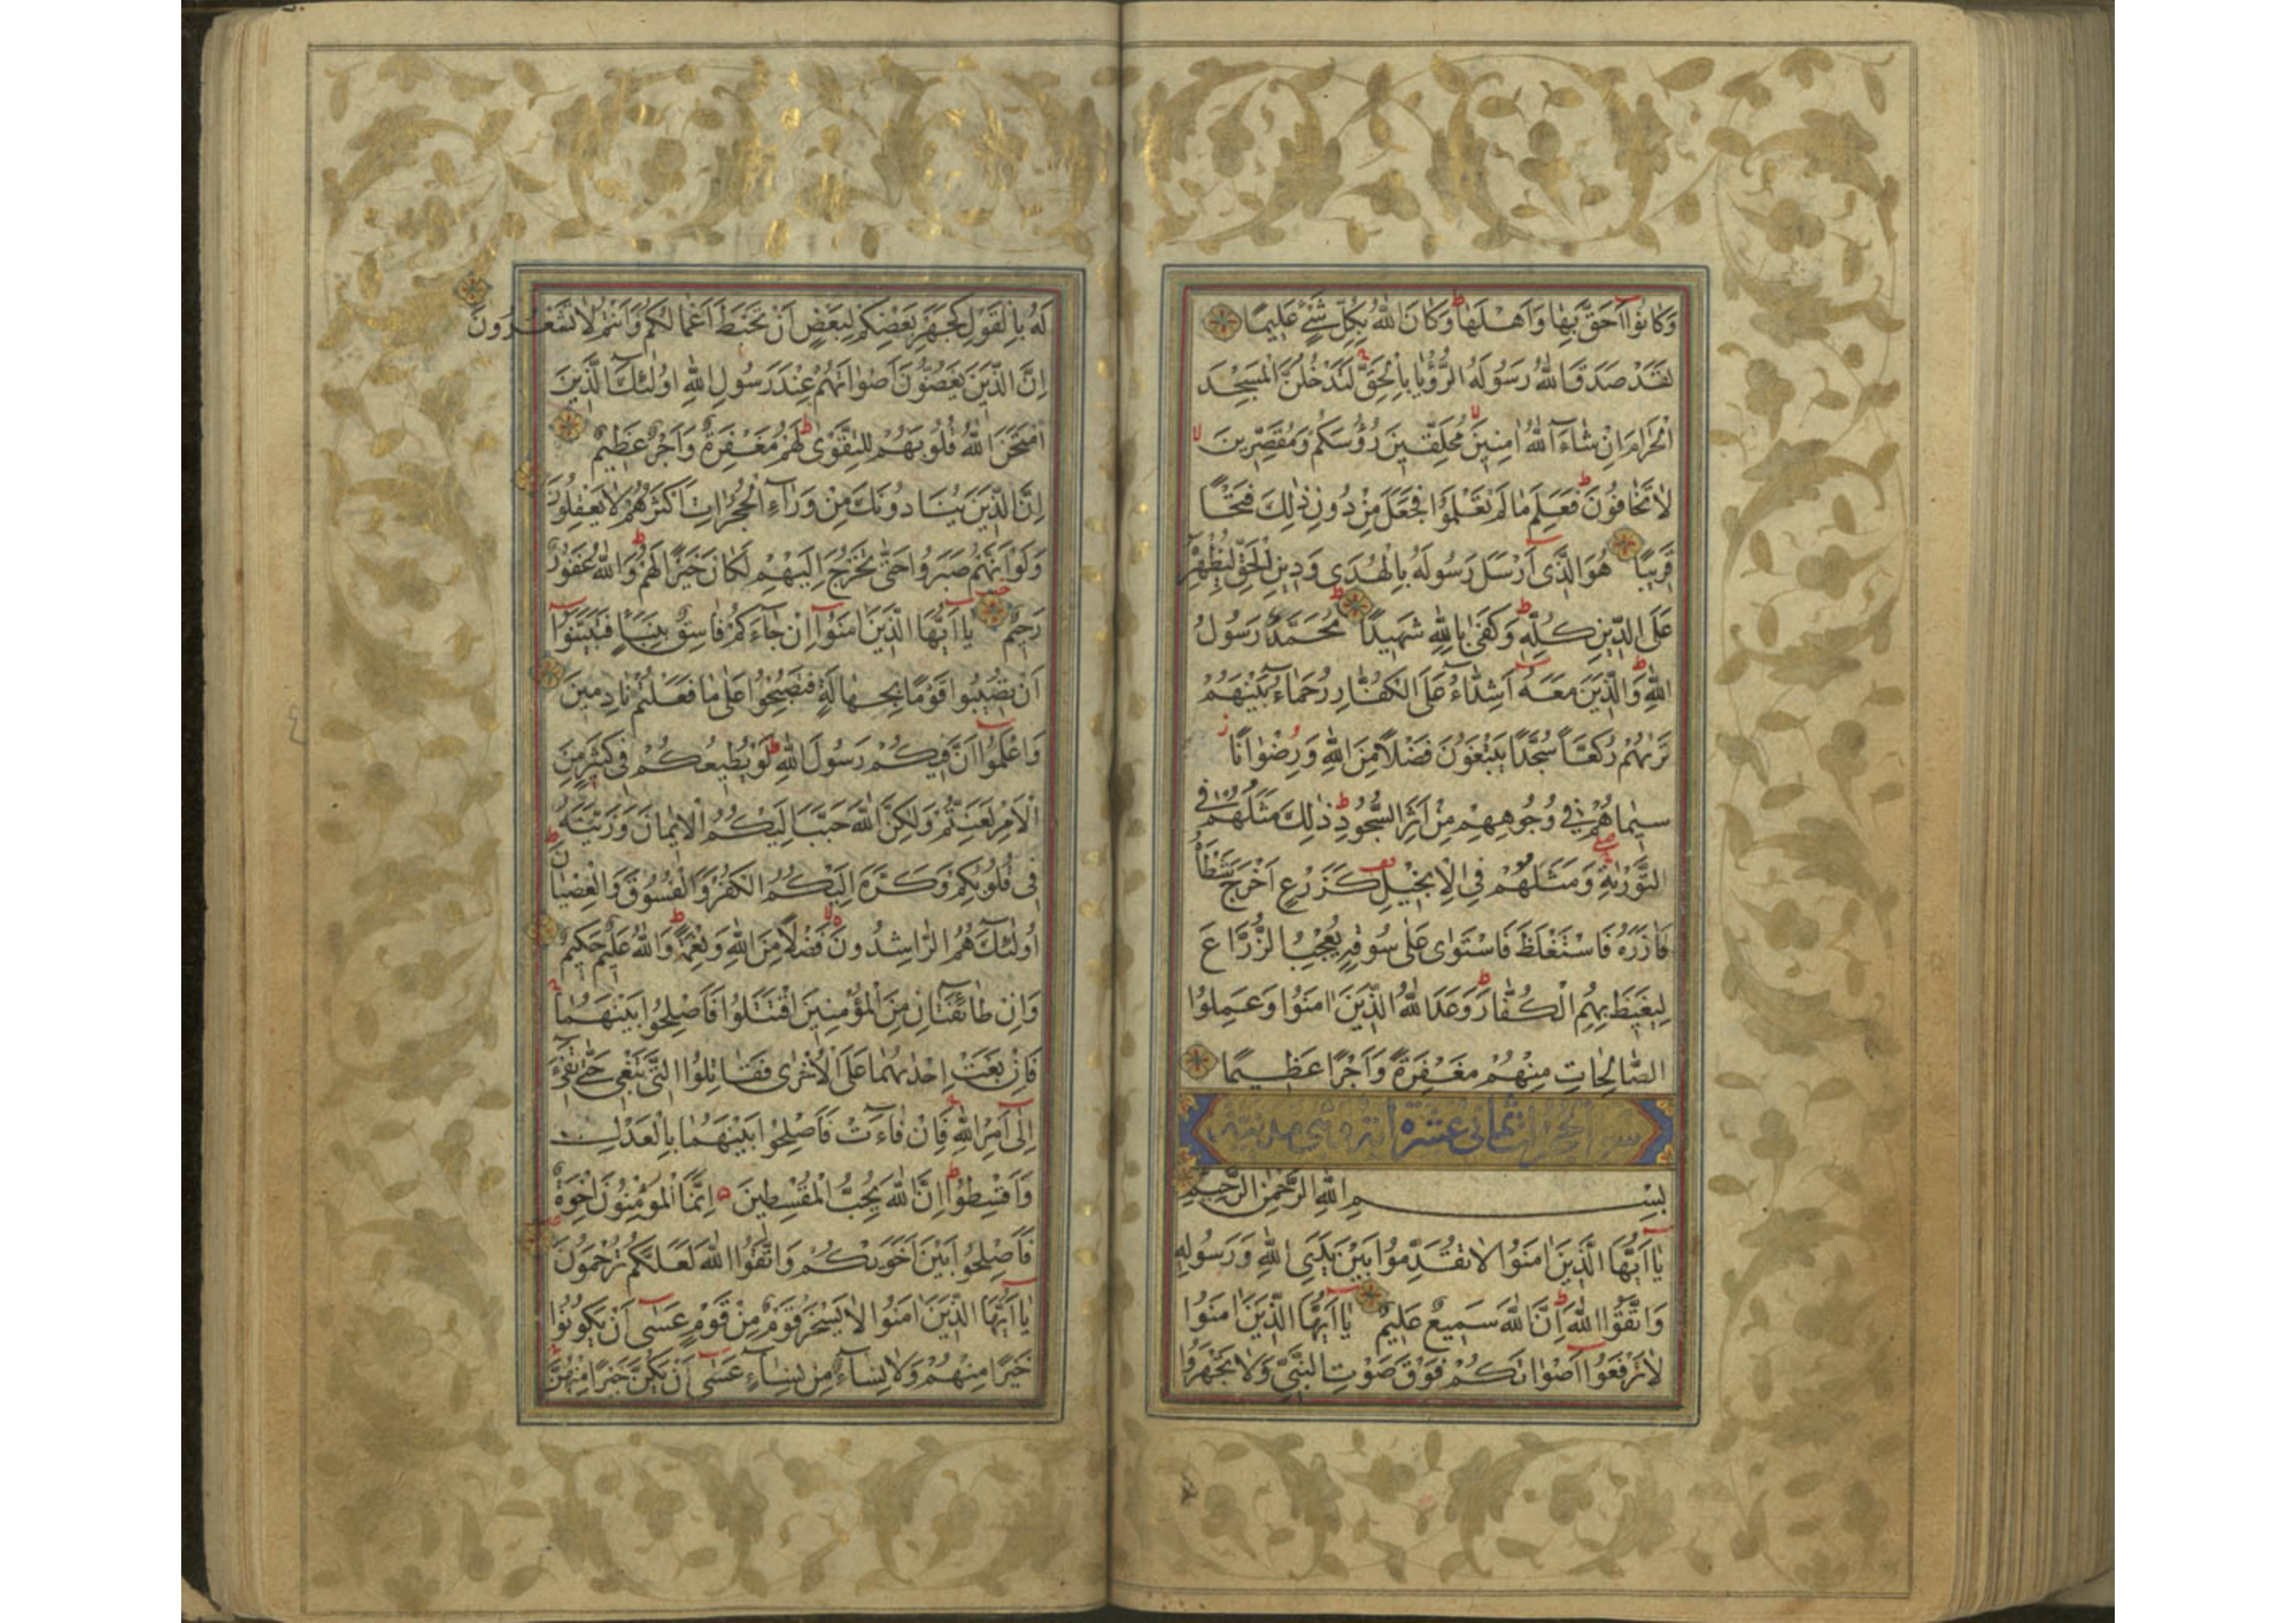 وَكَانُوا أَحَقَّ بِهَا وَأَهْلَهَا وَكَانَ اللهُ بِكُلِّ شَيْءٍ عَلِيمًا
لَقَدْ صَدَقَ اللهُ رَسُولَهُ الرُّؤْيَا بِالْحَقِّ لَتَدْخُلُنَّ الْمَسْجِدَ
الْحَرَامَ اِنْ شَاءَ اللهُ اٰمِنِينَ مُحَلِّقِينَ رُؤُسَكُمْ وَمُقَصِّرِينَ
لَا تَخَافُونَ فَعَلِمَ مَا لَمْ تَعْلَمُوا فَجَعَلَ مِنْ دُونِ ذٰلِكَ فَتْحًا
قَرِيبًا هُوَ الَّذِى اَرْسَلَ رَسُولَهُ بِالْهُدٰى وَدِينِ الْحَقِّ لِيُظْهِرَهُ
عَلَى الدِّينِ كُلِّهِ وَكَفٰى بِاللهِ شَهِيدًا مُحَمَّدٌ رَسُولُ
اللهِ وَالَّذِينَ مَعَهُ اَشِدَّاءُ عَلَى الْكُفَّارِ رُحَمَاءُ بَيْنَهُمْ
تَرٰىهُمْ رُكَّعًا سُجَّدًا يَبْتَغُونَ فَضْلًا مِنَ اللهِ وَرِضْوَانًا
سِيمَاهُمْ فِي وُجُوهِهِمْ مِنْ اَثَرِ السُّجُودِ ذٰلِكَ مَثَلُهُمْ فِي
التَّوْرٰيةِ وَمَثَلُهُمْ فِي الْاِنْجِيلِ كَزَرْعٍ اَخْرَجَ شَطْأَهُ
فَاٰزَرَهُ فَاسْتَغْلَظَ فَاسْتَوٰى عَلٰى سُوقِهِ يُعْجِبُ الزُّرَّاعَ
لِيَغِيظَ بِهِمُ الْكُفَّارَ وَعَدَ اللهُ الَّذِينَ اٰمَنُوا وَعَمِلُوا
الصَّالِحَاتِ مِنْهُمْ مَغْفِرَةً وَاَجْرًا عَظِيمًا
ثمانى عشرة
بِسْمِ اللهِ الرَّحْمٰنِ الرَّحِيمِ
يَا اَيُّهَا الَّذِينَ اٰمَنُوا لَا تُقَدِّمُوا بَيْنَ يَدَيِ اللهِ وَرَسُولِهِ
وَاتَّقُوا اللهَ اِنَّ اللهَ سَمِيعٌ عَلِيمٌ يَا اَيُّهَا الَّذِينَ اٰمَنُوا
لَا تَرْفَعُوا اَصْوَاتَكُمْ فَوْقَ صَوْتِ النَّبِيِّ وَلَا تَجْهَرُوا
لَهُ بِالْقَوْلِ كَجَهْرِ بَعْضِكُمْ لِبَعْضٍ اَنْ تَحْبَطَ اَعْمَالُكُمْ وَاَنْتُمْ لَا تَشْعُرُونَ
اِنَّ الَّذِينَ يَغُضُّونَ اَصْوَاتَهُمْ عِنْدَ رَسُولِ اللهِ اُولٰئِكَ الَّذِينَ
امْتَحَنَ اللهُ قُلُوبَهُمْ لِلتَّقْوٰى لَهُمْ مَغْفِرَةٌ وَاَجْرٌ عَظِيمٌ
اِنَّ الَّذِينَ يُنَادُونَكَ مِنْ وَرَاءِ الْحُجُرَاتِ اَكْثَرُهُمْ لَا يَعْقِلُونَ
وَلَوْ اَنَّهُمْ صَبَرُوا حَتّٰى تَخْرُجَ اِلَيْهِمْ لَكَانَ خَيْرًا لَهُمْ وَاللهُ غَفُورٌ
رَحِيمٌ يَا اَيُّهَا الَّذِينَ اٰمَنُوا اِنْ جَاءَكُمْ فَاسِقٌ بِنَبَإٍ فَتَبَيَّنُوا
اَنْ تُصِيبُوا قَوْمًا بِجَهَالَةٍ فَتُصْبِحُوا عَلٰى مَا فَعَلْتُمْ نَادِمِينَ
وَاعْلَمُوا اَنَّ فِيكُمْ رَسُولَ اللهِ لَوْ يُطِيعُكُمْ فِي كَثِيرٍ مِنَ
الْاَمْرِ لَعَنِتُّمْ وَلٰكِنَّ اللهَ حَبَّبَ اِلَيْكُمُ الْاِيمَانَ وَزَيَّنَهُ
فِي قُلُوبِكُمْ وَكَرَّهَ اِلَيْكُمُ الْكُفْرَ وَالْفُسُوقَ وَالْعِصْيَانَ
اُولٰئِكَ هُمُ الرَّاشِدُونَ فَضْلًا مِنَ اللهِ وَنِعْمَةً وَاللهُ عَلِيمٌ حَكِيمٌ
وَاِنْ طَائِفَتَانِ مِنَ الْمُؤْمِنِينَ اقْتَتَلُوا فَاَصْلِحُوا بَيْنَهُمَا
فَاِنْ بَغَتْ اِحْدٰيهُمَا عَلَى الْاُخْرٰى فَقَاتِلُوا الَّتِي تَبْغِي حَتّٰى تَفِيءَ
اِلٰى اَمْرِ اللهِ فَاِنْ فَاءَتْ فَاَصْلِحُوا بَيْنَهُمَا بِالْعَدْلِ
وَاَقْسِطُوا اِنَّ اللهَ يُحِبُّ الْمُقْسِطِينَ اِنَّمَا الْمُؤْمِنُونَ اِخْوَةٌ
فَاَصْلِحُوا بَيْنَ اَخَوَيْكُمْ وَاتَّقُوا اللهَ لَعَلَّكُمْ تُرْحَمُونَ
يَا اَيُّهَا الَّذِينَ اٰمَنُوا لَا يَسْخَرْ قَوْمٌ مِنْ قَوْمٍ عَسٰى اَنْ يَكُونُوا
خَيْرًا مِنْهُمْ وَلَا نِسَاءٌ مِنْ نِسَاءٍ عَسٰى اَنْ يَكُنَّ خَيْرًا مِنْهُنَّ